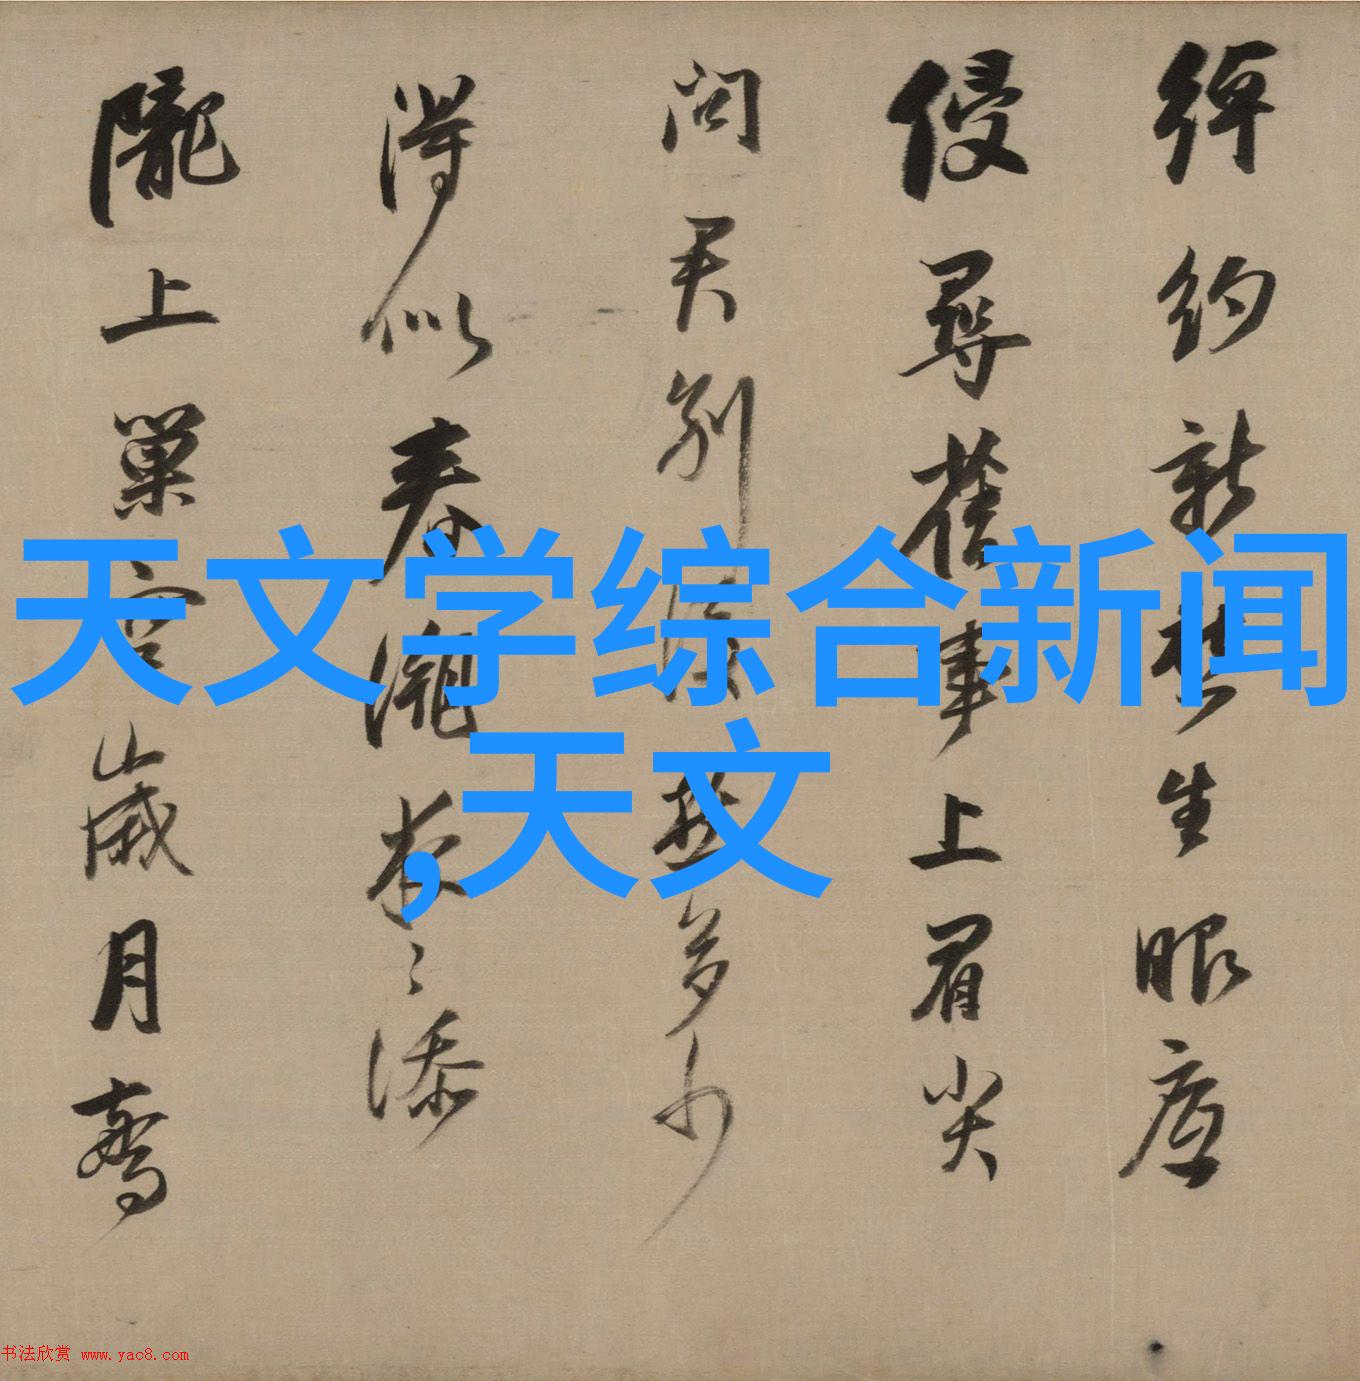 綽約新生眼底
侵尋舊事上眉尖
問君別後愁多少
得似春潮夜〻添
隴上巢空歲月驚
天文学综合新闻
,天文
书法欣赏 www.yac8.com